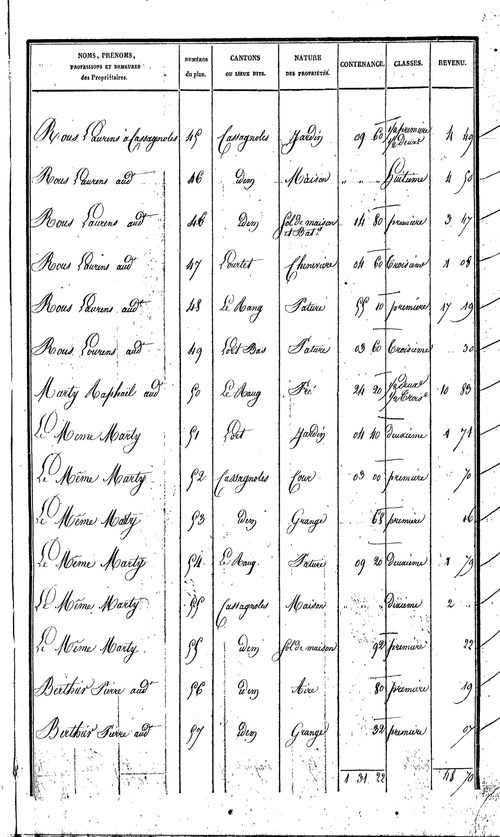 NOMS, PRÉNOMS, PROFESSIONS ET DEMEURES des Propriétaires. NUMÉROS du plan. CANTONS OU LIEUX DITS. NATURE DES PROPRIÉTÉS. CONTENANCE. CLASSES. REVENU.
Rous Laurens à Cassagnoles 45 Cassagnoles Jardin 09 60 1/2 premiere 1/2 deuxe 4 49
Rous Laurens aud 46 idem Maison " " huitieme 4 50
Rous Laurens aud 46 idem Sol de maison et Bat. 14 80 premiere 3 47
Rous Laurens aud 47 Lourtet Cheneviere 04 60 troisieme 1 08
Rous Laurens aud 48 Le Rang Pature 55 10 premiere 17 19
Rous Laurens aud 49 Lort Bas Pature 03 60 troisieme 30
Marty Raphaël aud 50 Le Rang Pré 24 20 1/2 deuxe 1/2 trois e 10 83
Le Même Marty 51 Lort Jardin 04 10 deuxieme 1 71
Le Même Marty 52 Cassagnoles Cour 03 00 premiere 70
Le Même Marty 53 idem Grange 68 premiere 16
Le Même Marty 54 Le Rang Pature 09 20 deuxieme 1 79
Le Même Marty 55 Cassagnoles Maison " " dixieme 2 "
Le Même Marty 55 idem Sol de maison 92 premiere 22
Berthier Pierre aud 56 idem Aire 80 premiere 19
Berthier Pierre aud 57 idem Grange 32 premiere 07
1 31 22 48 70